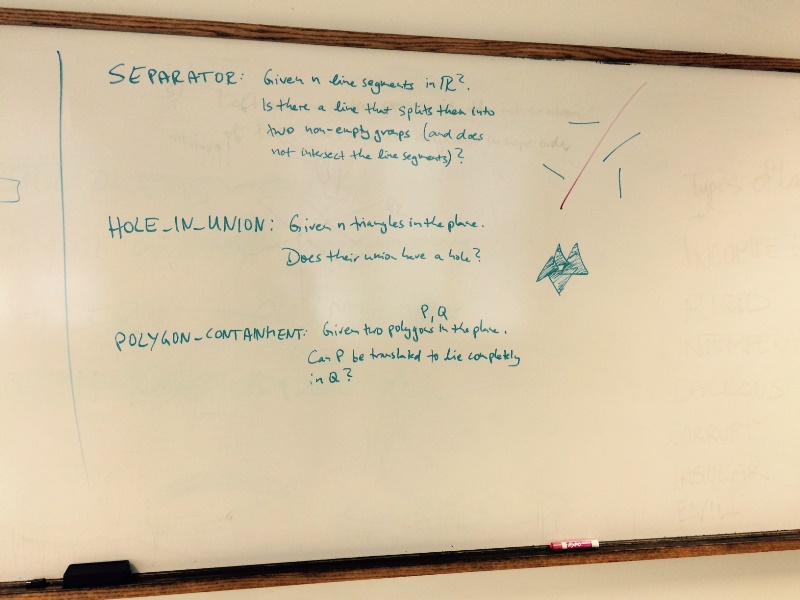 SEPARATOR: Given n line segments in ℝ².
Is there a line that splits them into
two non-empty groups (and does
not intersect the line segments)?
HOLE_IN_UNION: Given n triangles in the plane.
Does their union have a hole?
P, Q
POLYGON_CONTAINMENT: Given two polygons in the plane.
Can P be translated to lie completely
in Q?
EXPO